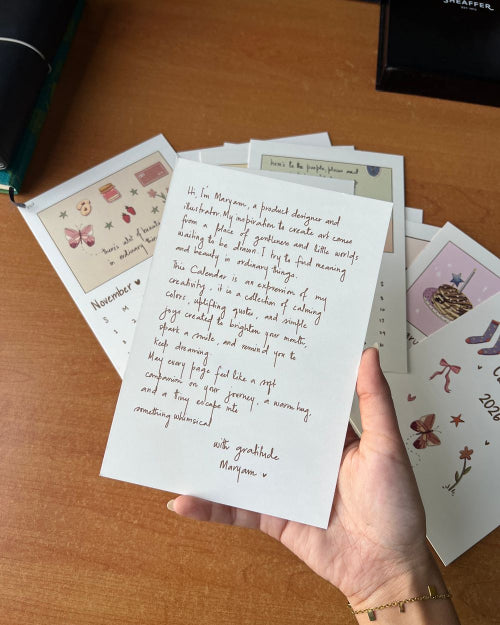 SHEAFFER
here's to the people, places and
there's a lot of beauty
in ordinary things
November
S M
Hi, I'm Maryam, a product designer and
illustrator. My inspiration to create art comes
from a place of gentleness and little worlds
waiting to be drawn. I try to find meaning
and beauty in ordinary things.
This Calendar is an expression of my
creativity, it is a collection of calming
colors, uplifting quotes, and simple
joys created to brighten your month,
spark a smile, and remind you to
keep dreaming.
May every page feel like a soft
companion on your journey, a warm hug.
and a tiny escape into
something whimsical
with gratitude
Maryam
2026